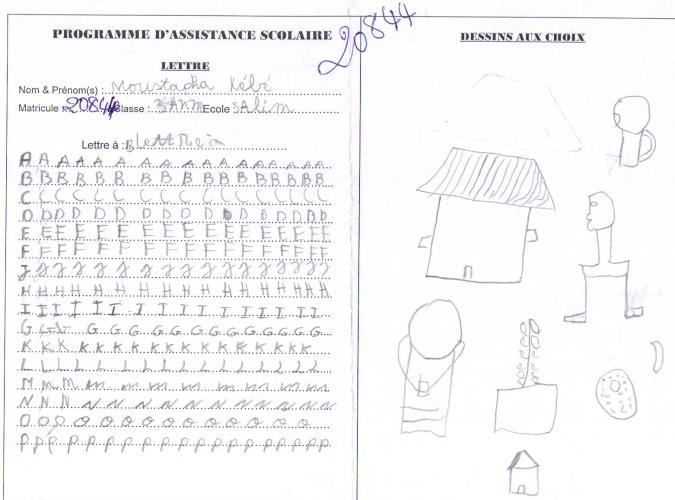 PROGRAMME D'ASSISTANCE SCOLAIRE
20844
DESSINS AUX CHOIX
LETTRE
Nom & Prénom(s) : Moustapha Kébé
Matricule 20844 Classe : Ecole SAlim
Lettre à :
A A A A A A A A A A A A A A A A
B B B B B B B B B B B B B B B B
C C C C C C C C C C C C C C C C
D D D D D D D D D D D D D D D
E E E E E E E E E E E E E E E
F F F F F F F F F F F F F F F
J J J J J J J J J J J J J J J J
H H H H H H H H H H H H H H H
I I I I I I I I I I I I I I
G G G G G G G G G G G G G G
K K K K K K K K K K K K K K K
L L L L L L L L L L L L L L
M M M M M M M M M M M M M
N N N N N N N N N N N N N
O O O O O O O O O O O O O O
P P P P P P P P P P P P P P P P